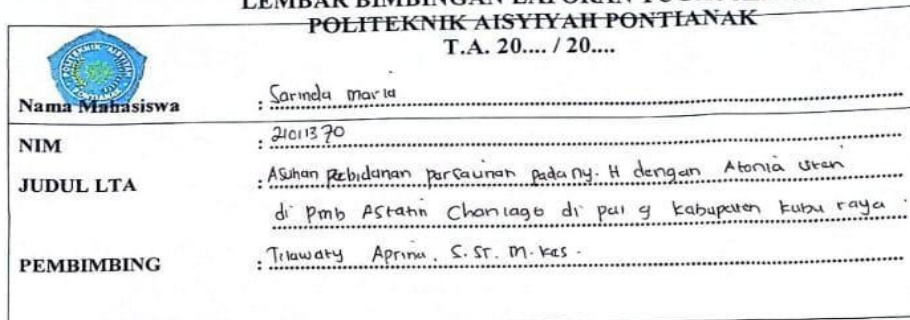 LEMBAR BIMBINGAN LAPORAN TUGAS
POLITEKNIK AISYIYAH PONTIANAK
T.A. 20.... / 20....
POLITEKNIK AISYIYAH
PONTIANAK
Nama Mahasiswa : Sarinda maria
NIM : 21011370
JUDUL LTA : Asuhan kebidanan persalinan pada ny. H dengan Atonia uteri
di Pmb Astatin Chaniago di pal 9 kabupaten kubu raya.
PEMBIMBING : Tilawaty Aprina, S.ST. M.Kes.